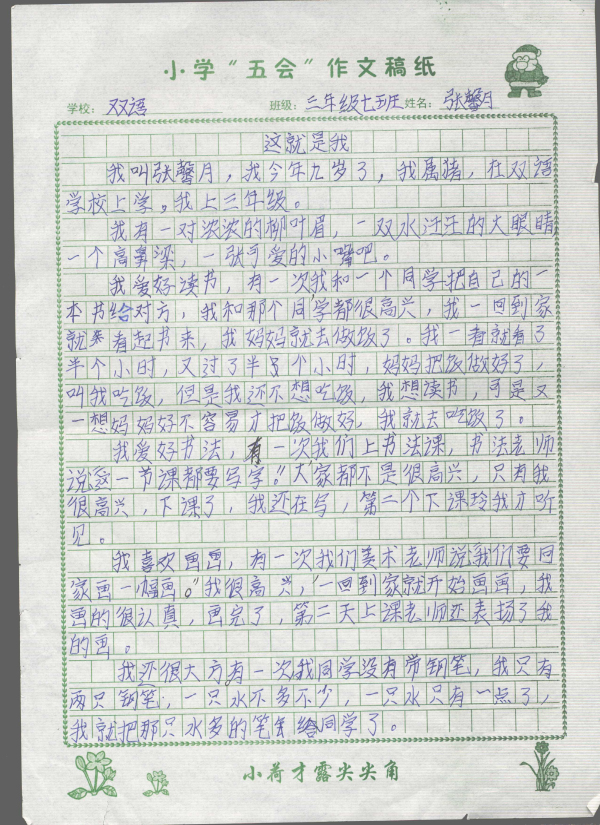 小学“五会”作文稿纸
学校：双语 班级：三年级七五班 姓名：张馨月
这就是我
我叫张馨月，我今年九岁了，我属猪，在双语
学校上学。我上三年级。
我有一对浓浓的柳叶眉，一双水汪汪的大眼睛
一个高鼻梁，一张可爱的小嘴吧。
我爱好读书，有一次我和一个同学把自己的一
本书给对方，我和那个同学都很高兴，我一回到家
就看起书来，我妈妈就去做饭了。我一看就看了
半个小时，又过了半个小时，妈妈把饭做好了，
叫我吃饭，但是我还不想吃饭，我想读书，可是又
一想妈妈好不容易才把饭做好，我就去吃饭了。
我爱好书法，有一次我们上书法课，书法老师
说这一节课都要写字。”大家都不是很高兴，只有我
很高兴，下课了，我还在写，第二个下课玲我才听
见。
我喜欢画画，有一次我们美术老师说我们要回
家画一幅画。”我很高兴，一回到家就开始画画，我
画的很认真，画完了，第二天上课老师还表扬了我
的画。
我还很大方有一次我同学没有带钢笔，我只有
两只钢笔，一只水不多不少，一只水只有一点了，
我就把那只水多的笔给同学了。
小荷才露尖尖角